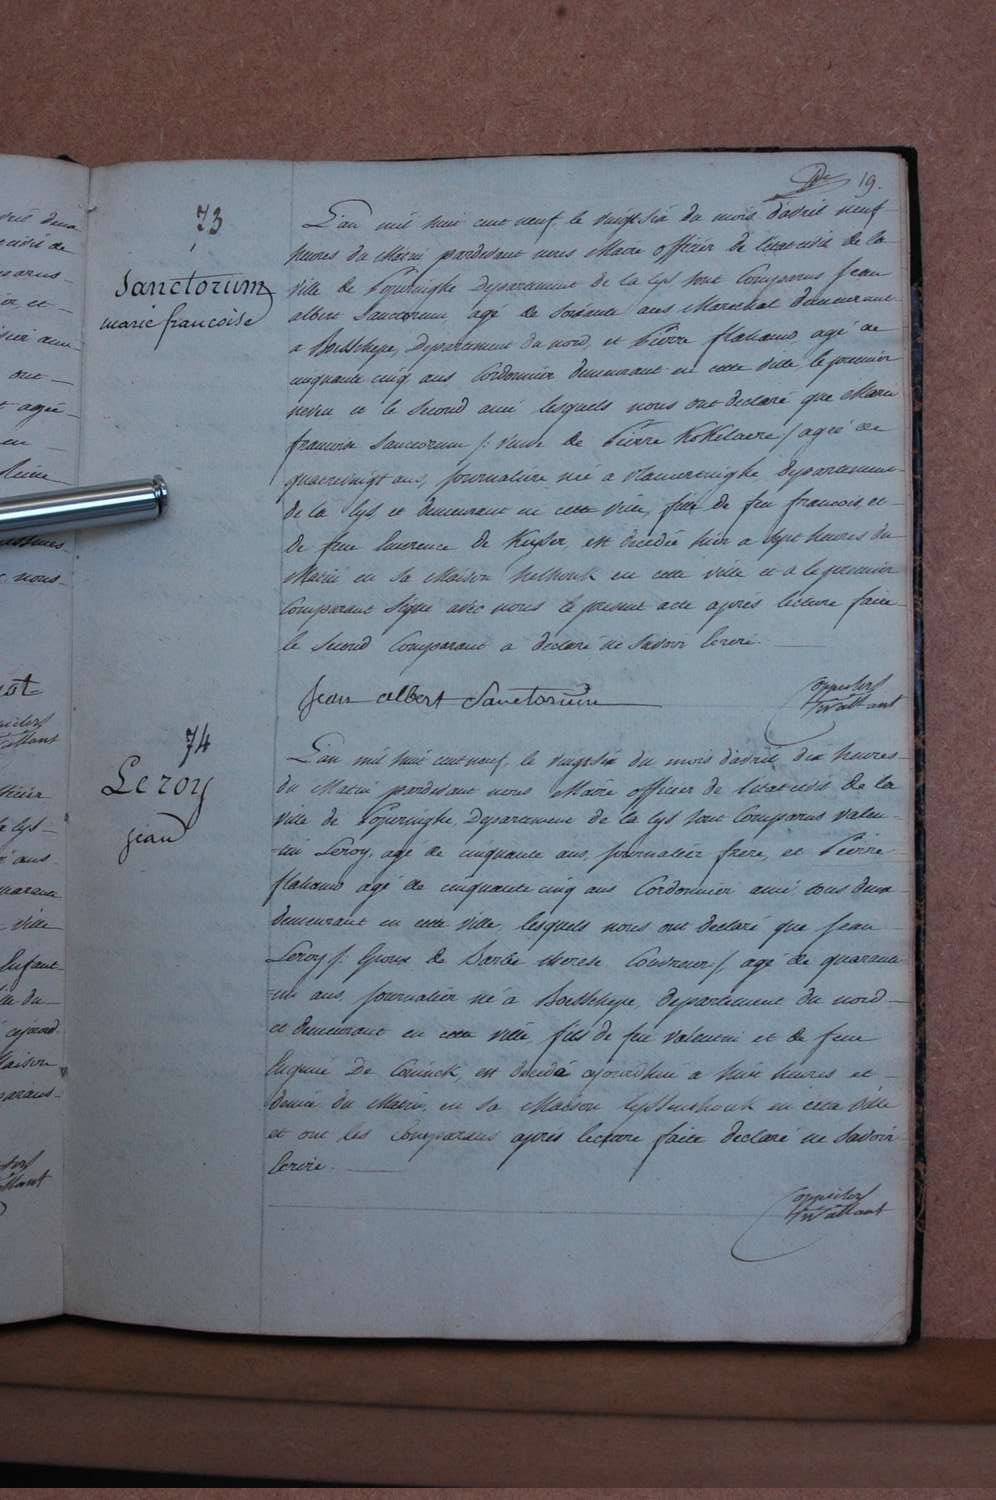 19.
73
Sanctorum
marie francoise
L'an mil huit cent neuf, le vingt six du mois d'avril neuf
heures du Matin pardevant nous Maire officier de l'etat civil de la
ville de Poperinghe Departement de la Lys sont Comparus Jean
albert Sanctorum agé de soixante ans Marechal demeurant
a Boeschepe, Departement du nord, et Pierre flahaud agé de
cinquante cinq ans Cordonnier demeurant en cette ville le premier
neveu et le second ami lesquels nous ont declaré que Marie
francoise Sanctorum /: veuve de Pierre Kokelaere :/ agée de
quatrevingt ans, journaliere née a vlamertinghe Departement
de la Lys et demeurant en cette ville, fille de feu francois, et
de feue laurence de Keyser, est decedée hier a sept heures du
Matin en sa Maison helhouk en cette ville et a le premier
Comparant signé avec nous le present acte aprés lecture faite
le second Comparant a declaré ne savoir Ecrire.
Jean albert Sanctorum
74
Leroy
jean
L'an mil huit cent neuf, le vingt six du mois d'avril dix heures
du Matin pardevant nous Maire officier de l'etat civil de la
ville de Poperinghe, Departement de la Lys sont Comparus valen-
-tin Leroy, agé de cinquante ans, journalier frere, et Pierre
flahaud agé de cinquante cinq ans Cordonnier ami tous deux
demeurant en cette ville, lesquels nous ont declaré que Jean
Leroy /: Epoux de Barbe therese Couvreur :/ agé de quarante
-un ans, journalier né à Boeschepe, departement du nord
et demeurant en cette ville, fils de feu valentin et de feue
Eugenie De Coninck, est decedé ajourdhui a huit heures et
demie du Matin, en sa Maison en cette ville
et ont les Comparans aprés lecture faite declaré ne savoir
Ecrire.